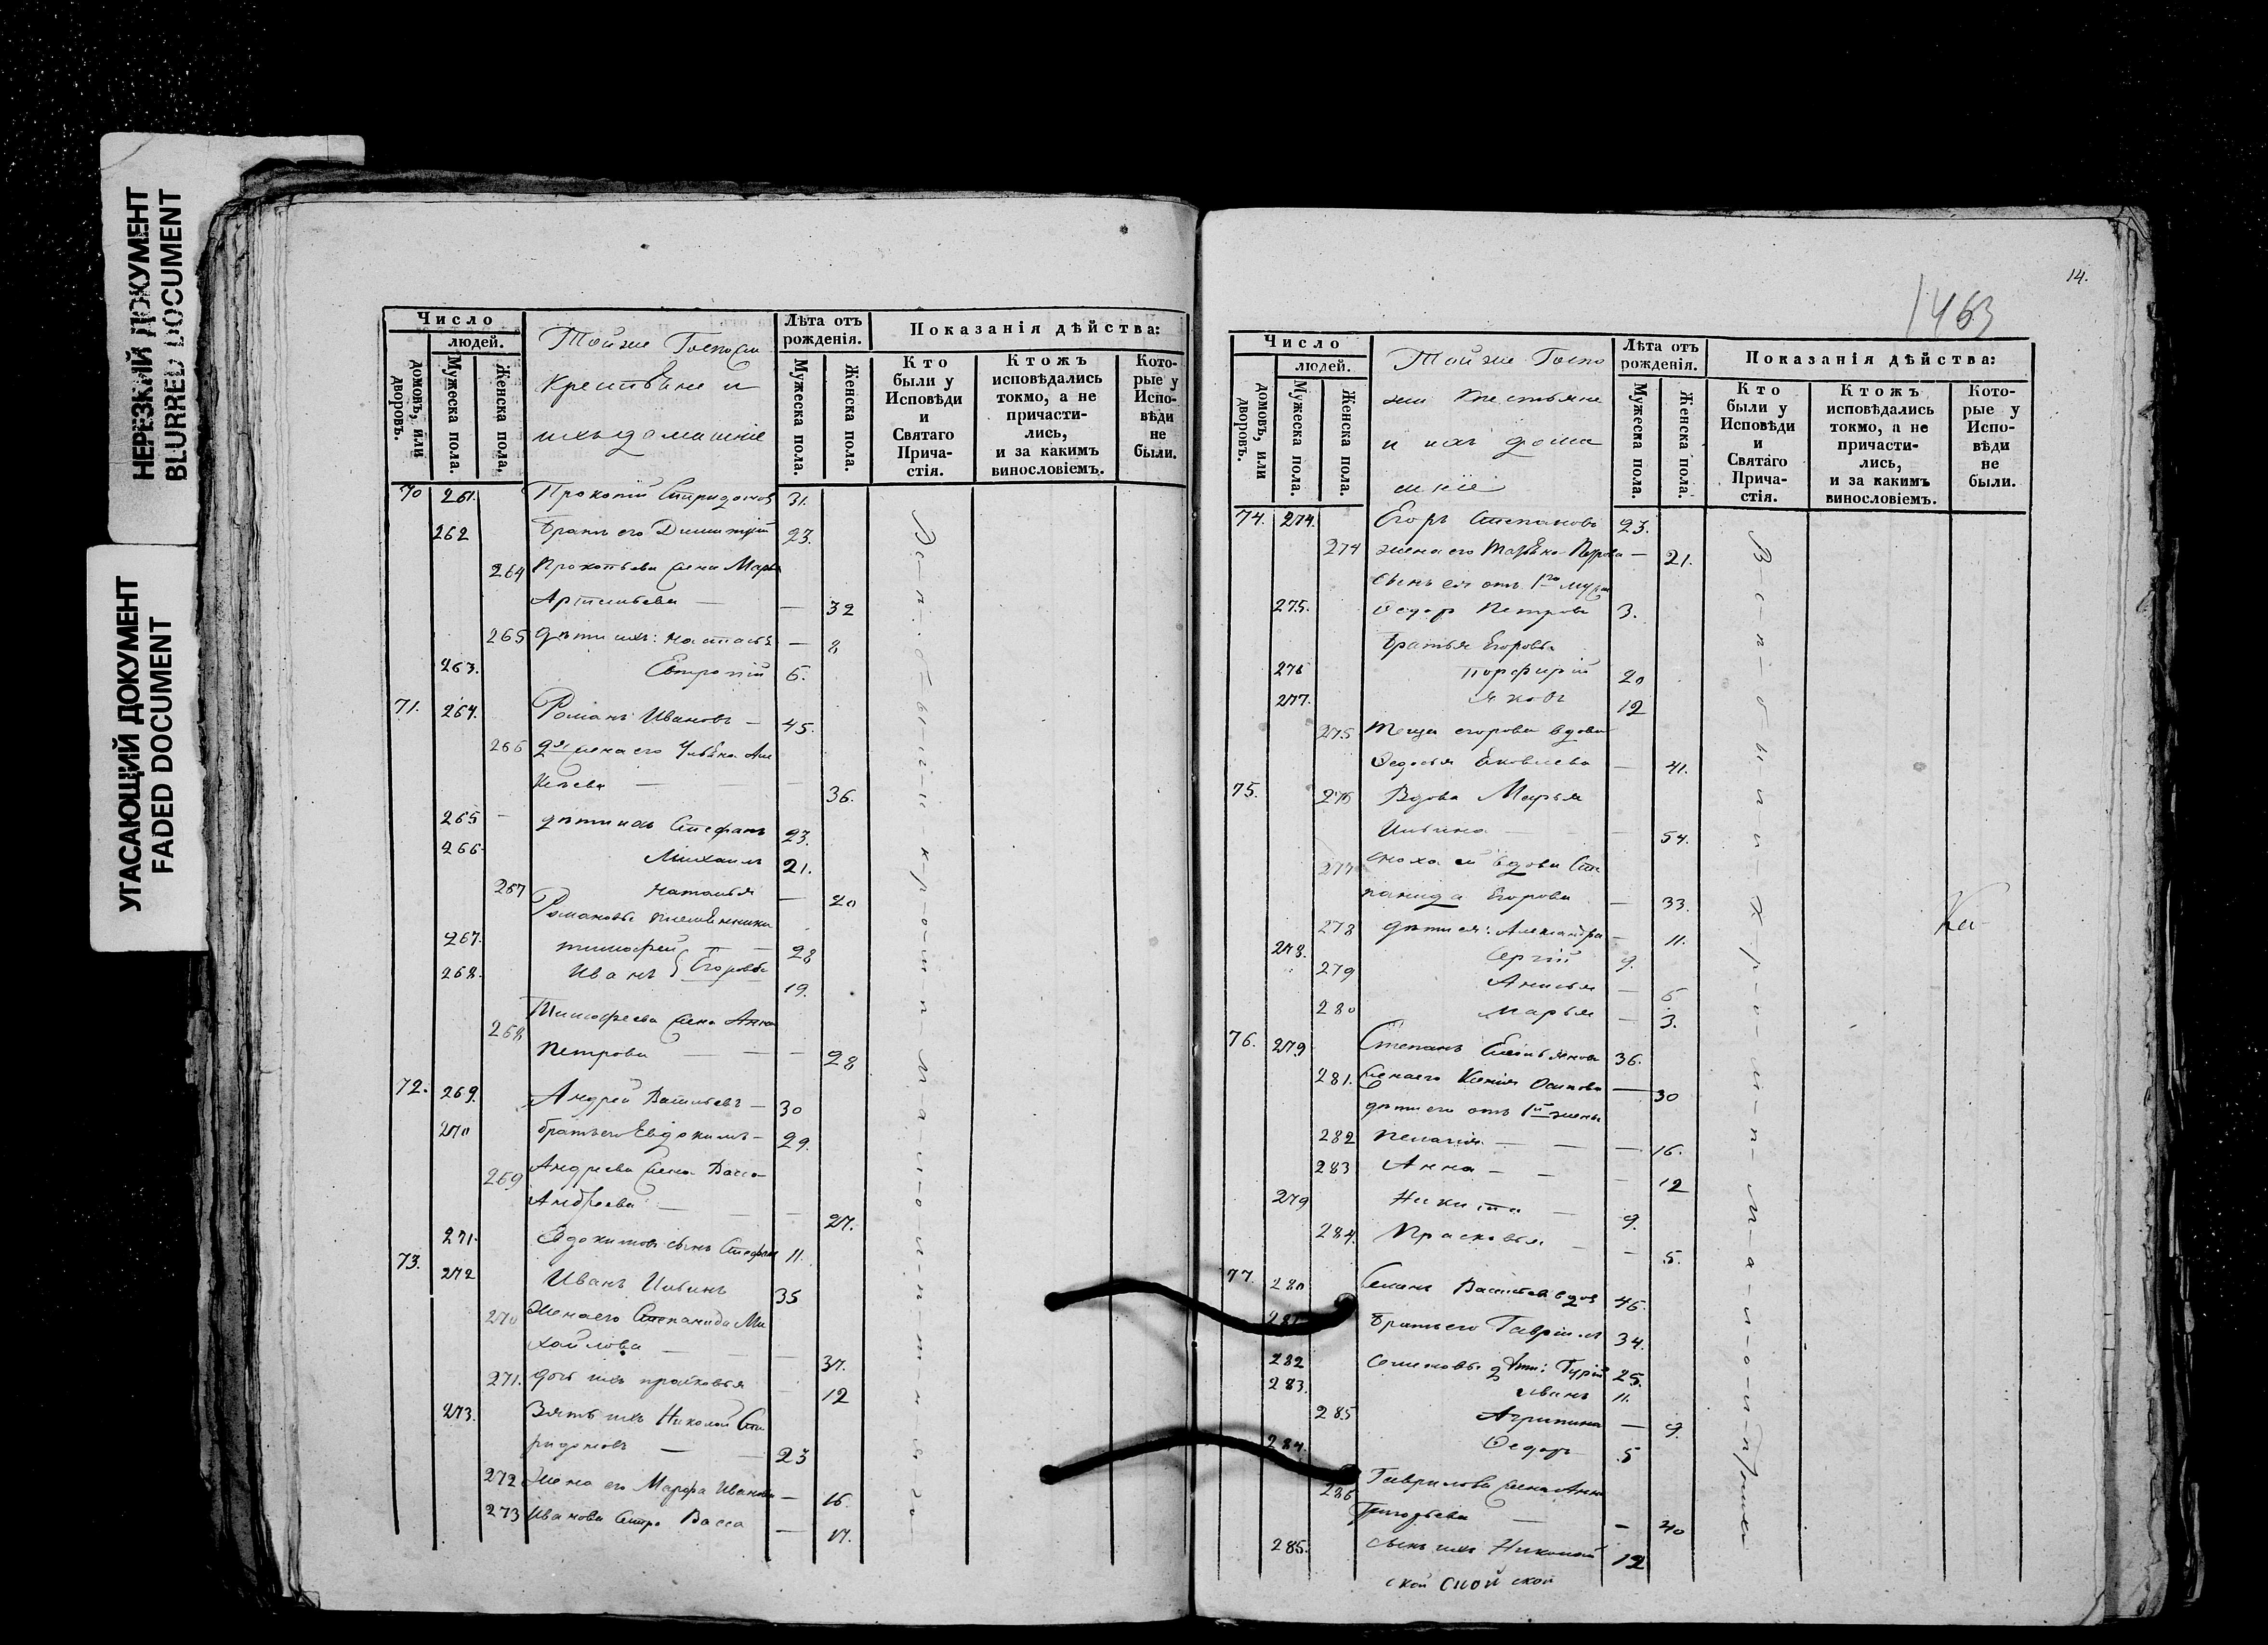 НЕРЕЗКИЙ ДОКУМЕНТ
BLURRED DOCUMENT
УГАСАЮЩИЙ ДОКУМЕНТ
FADED DOCUMENT
Число
людей.
домовъ, или дворовъ.
Мужеска пола.
Женска пола.
Тойже
Крестьяне и
ихъ домашніе
Лѣта отъ рожденія.
Мужеска пола.
Женска пола.
Показанія дѣйства:
Кто были у Исповѣди и Святаго Прича-стія.
Ктожъ исповѣдались токмо, а не причасти-лись, и за какимъ винословіемъ.
Кото-рые у Испо-вѣди не были.
70 261. Прокопій Спиридоновъ 31.
262 братъ его Димитрій 23.
264 Прокопьева жена Марья
— — 32
265 дѣти ихъ: Настасья — 8
263. Евтропій 6.
71. 264. Романъ Ивановъ — 45.
266 жена его
— — 36.
265 — дѣти ихъ Стефанъ 23.
266. Михаилъ 21.
267 Наталья — 20
Романовы племянники
267. Тимофей — 28
268. Иванъ Егоровы 19.
268 Тимофеева жена Анна
Петрова — — — 28
72. 269. Андрей Васильевъ — 30
270 братъ его Евдокимъ — 29.
269 Андреева жена Васса
Андреева — — — 27.
271. Евдокимовъ сынъ Стефанъ 11.
73. 272 Иванъ Ильинъ 35
270 Жена его Степанида Ми
хайлова — — — 37.
271. дочь ихъ Прасковья — 12
273. Зять ихъ Николай Спи
ридоновъ — — 23
272 Жена его Марфа Иванова — 16.
273 Иванова Васса — 17.
14.
1463
Число
людей.
домовъ, или дворовъ.
Мужеска пола.
Женска пола.
Тойже Госпо
жи Крестьяне
и ихъ дома
шніе
Лѣта отъ рожденія.
Мужеска пола.
Женска пола.
Показанія дѣйства:
Кто были у Исповѣди и Святаго Прича-стія.
Ктожъ исповѣдались токмо, а не причасти-лись, и за какимъ винословіемъ.
Кото-рые у Испо-вѣди не были.
74. 274. Егоръ Степановъ 23.
274 жена его Петрова — 21.
сынъ ея отъ 1го мужа
275. Ѳедоръ Петровъ 3.
братья Егоровы
276 Порфирій 20
277. Яковъ 12
275 теща Егорова вдова
Ѳедосья Яковлева — 41.
75. 276 Вдова Марья
Ильина — — — 54.
277 сноха ей вдова Сте
панида Егорова — 33.
278 дѣти ея: Александра — 11.
278. Сергій 9.
279 Анисья — 6
280 Марья — 3.
76. 279 Степанъ Емельяновъ 36.
281. Жена его Ксенія Осипова — 30
дѣти его отъ 1й жены
282 Пелагія — — — 16.
283 Анна — — — 12
279 Никита — 9.
284. Прасковья — — 5.
77. 280 Семенъ Васильевъ вдов 46.
281 братъ его Гавріилъ 34.
282 Семеновы дѣти: Гурій 25.
283. Иванъ 11.
285 Агрипина — 9.
284. Ѳедоръ 5
286 Гаврилова жена Анна
Григорьева — — 40
285. сынъ ихъ Николай 12